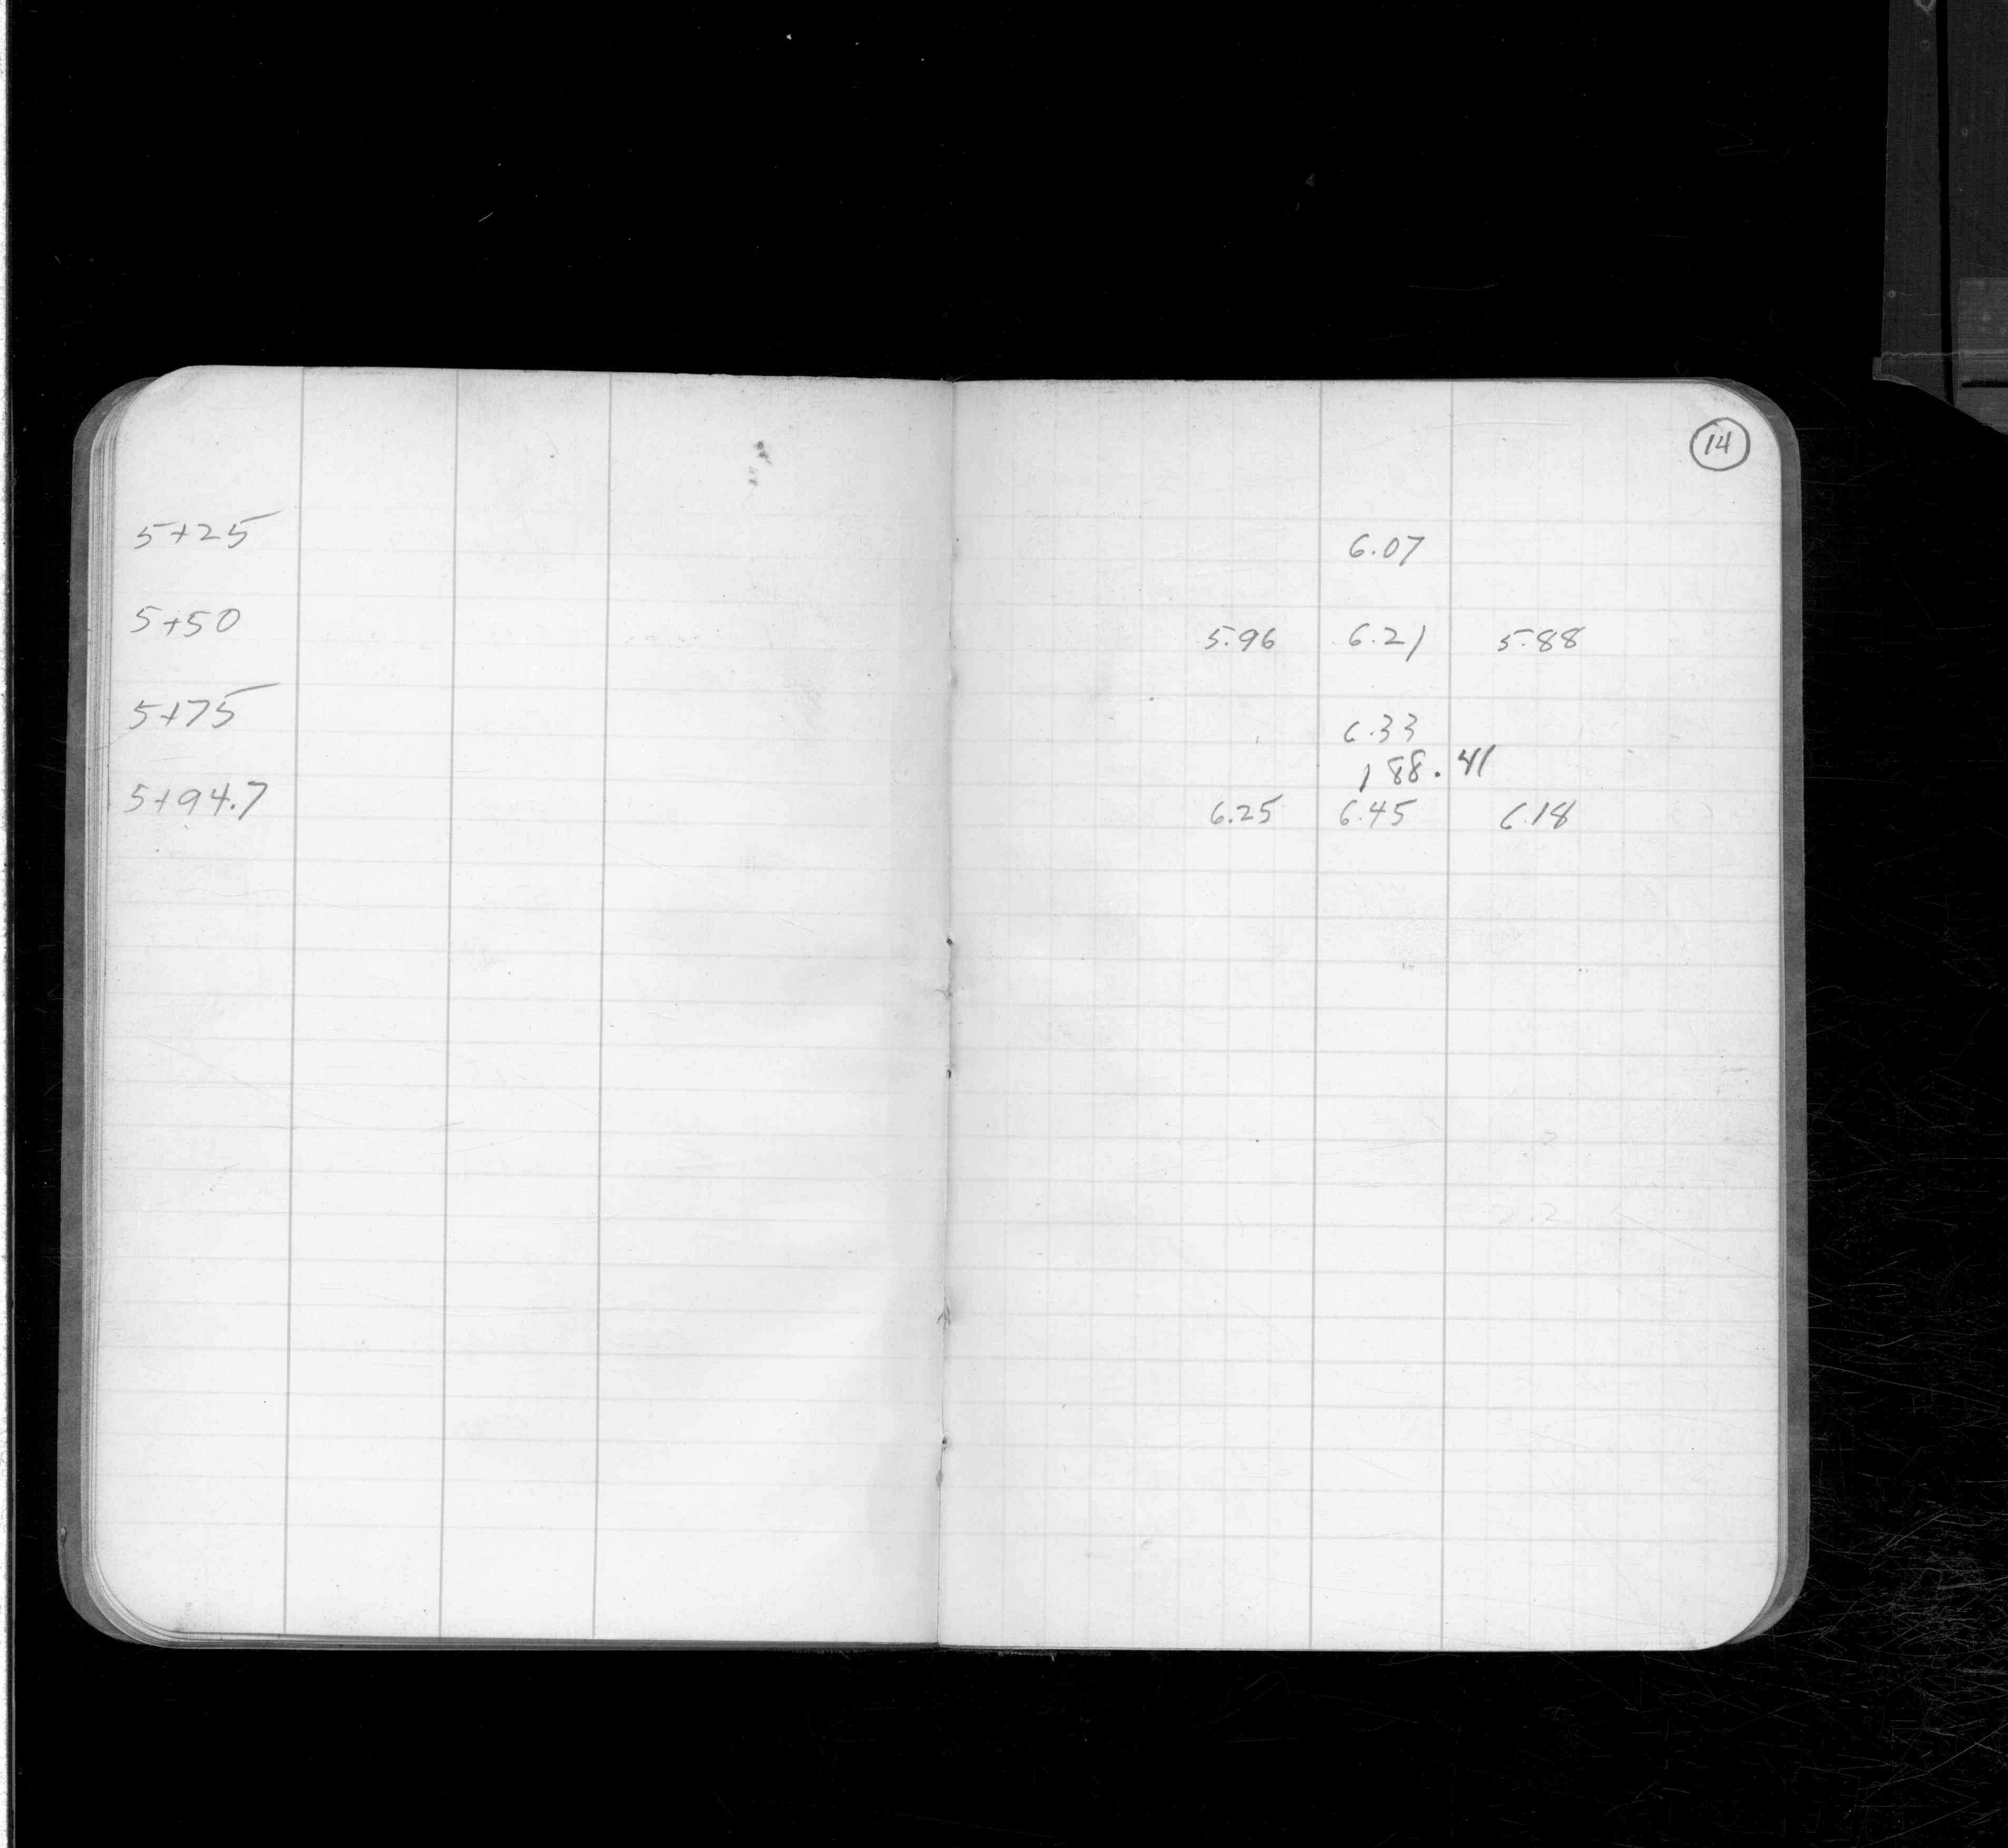 14
5+25 6.07
5+50 5.96 6.21 5.88
5+75 6.33
188.41
5+94.7 6.25 6.45 6.18